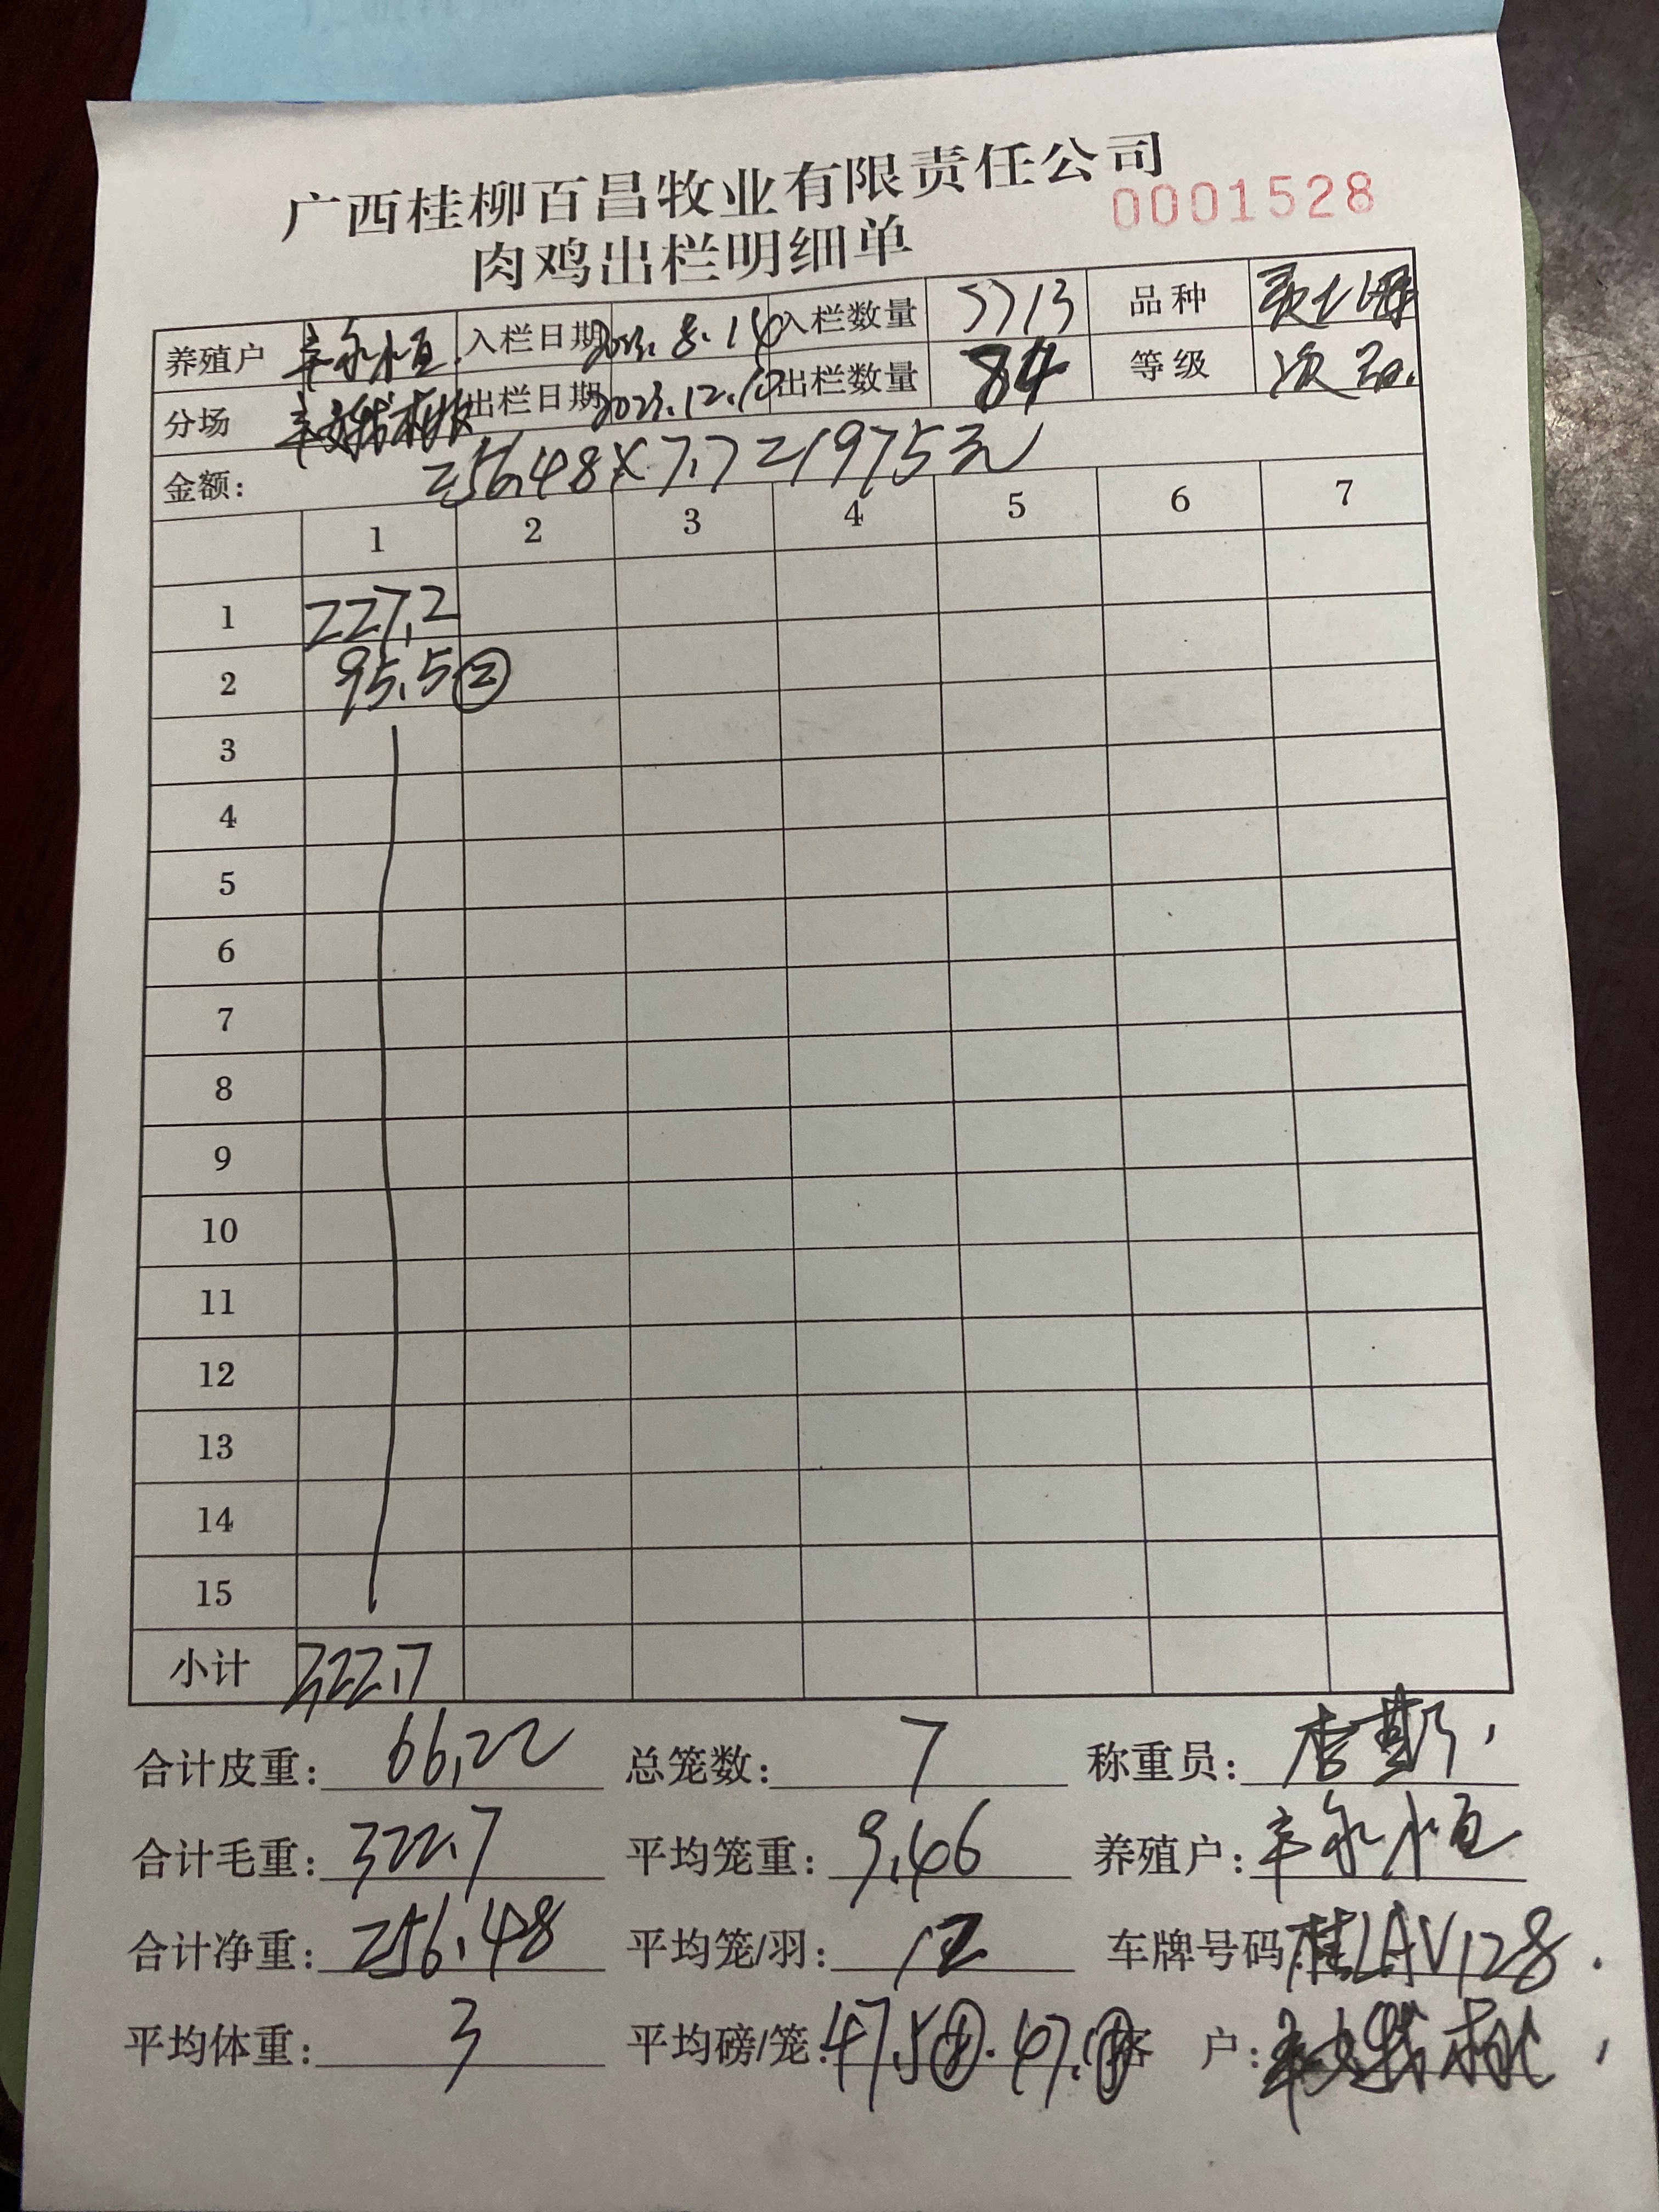 广西桂柳百昌牧业有限责任公司
0001528
肉鸡出栏明细单
养殖户 永恒 入栏日期 2023.8.14 入栏数量 5713 品种
分场 出栏日期 2023.12.10 出栏数量 84 等级 次
金额: 256.48×7.7=1975元
1 2 3 4 5 6 7
1 227.2
2 95.5 ②
3
4
5
6
7
8
9
10
11
12
13
14
15
小计 322.7
合计皮重: 66.22 总笼数: 7 称重员: 李
合计毛重: 322.7 平均笼重: 9.46 养殖户: 永恒
合计净重: 256.48 平均笼/羽: 12 车牌号码: 桂LAV128
平均体重: 3 平均磅/笼: 47.5 户: